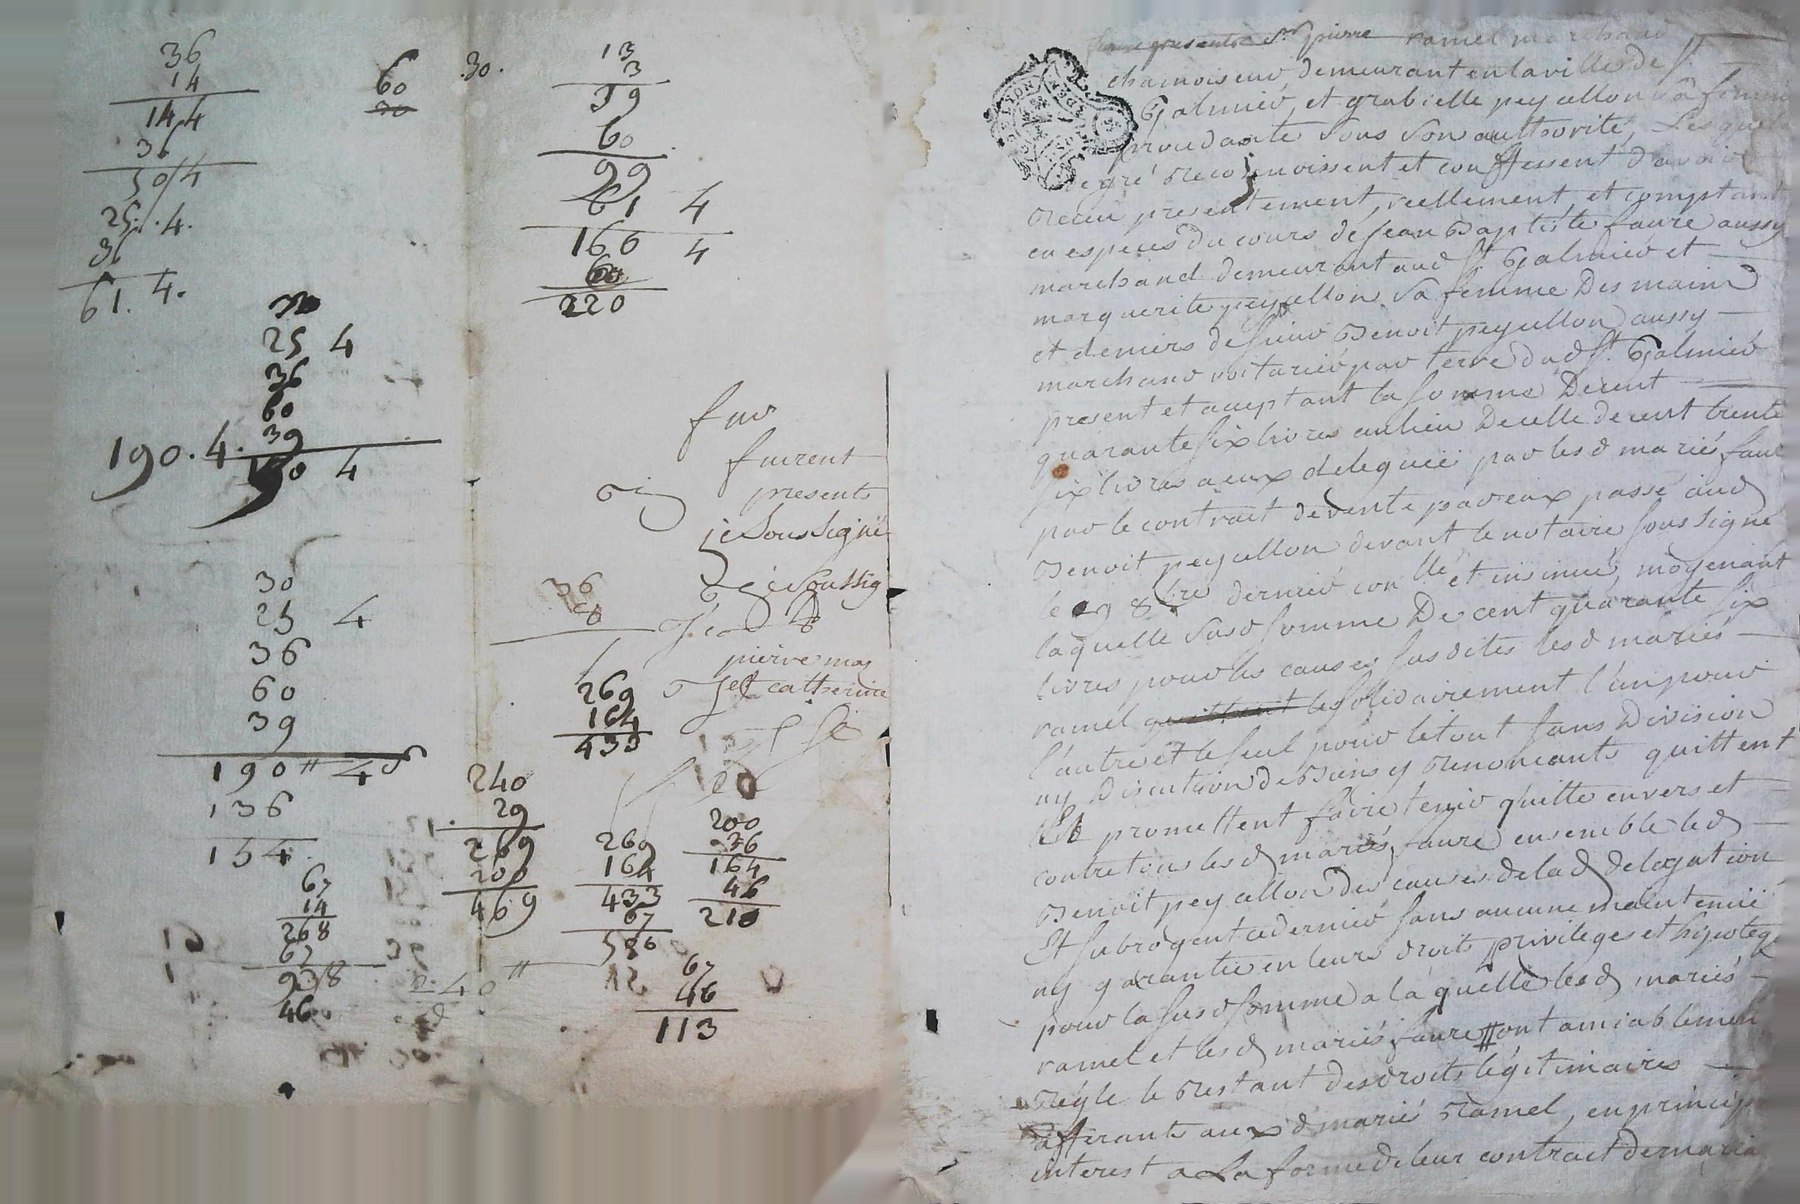 36
14
144
36
50/4
25. .4.
36
61. 4.
60
30
.30.
13
3
39
60
99
61 4
160 4
60
220
30
25 4
36
60
39
190.4.
190 4
30
25 4
36
60
39
190 " 4 s
136
154
67
14
268
67
938
46
fur
furent
presents
je Soussigné
je Soussig
36
pierre mas
et catherine
269
164
433
240
29
269
200
469
269
164
433
67
586
200
36
164
46
210
240 "
67
46
113
Sr pierre ramel marchand
chamoiseur demeurant en la ville de St
Galmier, et grabielle peycellon sa femme
procedante sous son authorité, Lesquels
de gré reconnoissent et confessent d'avoir
receu presentement, reellement, et comptant
en especes du cours de Jean Baptiste faure aussy
marchand demeurant aud St Galmier et
marguerite peycellon sa femme Des mains
et deniers de sieur Benoit peycellon aussy
marchand voiturier par terre dud St. Galmier
present et acceptant la somme De cent
quarante six livres au lieu De celle de cent trente
six livres a eux deleguéé par les d mariés faure
par le contrait de vente par eux passé aud
Benoit peycellon devant le notaire soussigné
le 29 8bre dernier con llé et insinué, moyenant
laquelle susd somme De cent quarante six
livres pour les causes susdites les d mariés
ramel solidairement l'un pour
l'autre et le seul pour le tout sans Division
ny Discution de Biens y renonceants quittent
Et promettent faire tenir quitte envers et
contre tous les d mariés faure ensemble led
Benoit peycellon Des causes de la d delegation
Et subrogent ce dernier sans aucune maintenüe
ny garantie en leurs droits privileges et hipoteq
pour la susd somme a la quelle les d mariés
ramel et les d mariés faure ont amiablemen
réglé le restant des droits légitimaires
afferants aux d mariés Ramel, en principa
interest a la forme de leur contract de maria